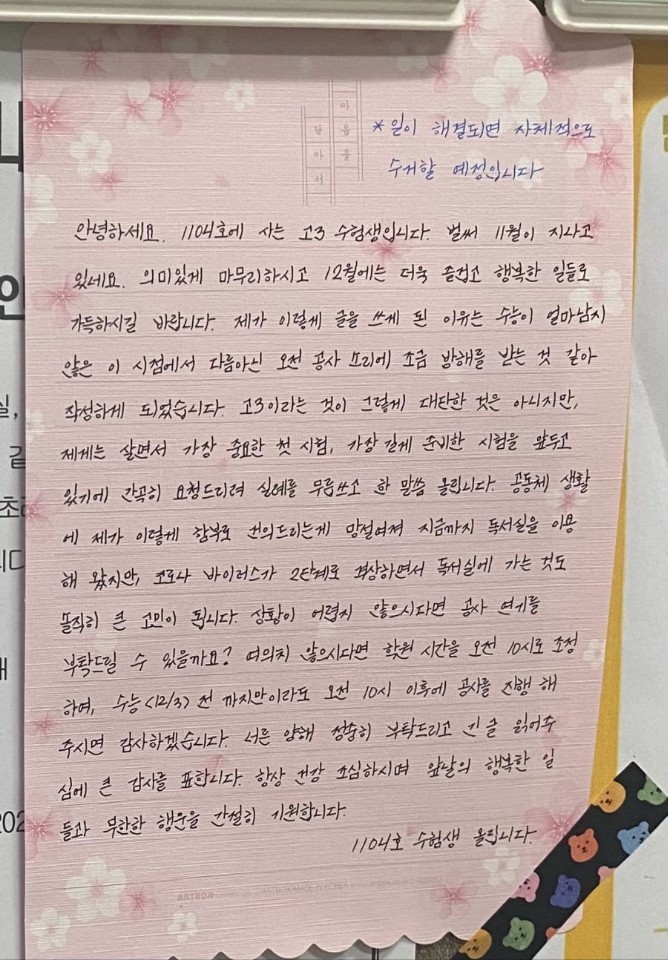 마음
담아
서
*일이 해결되면 자체적으로
수거할 예정입니다
안녕하세요. 1104호에 사는 고3 수험생입니다. 벌써 11월이 지나고
있네요. 의미있게 마무리하시고 12월에는 더욱 즐겁고 행복한 일들로
가득하시길 바랍니다. 제가 이렇게 글을 쓰게 된 이유는 수능이 얼마남지
않은 이 시점에서 다름아닌 오전 공사 소리에 조금 방해를 받는 것 같아
작성하게 되었습니다. 고3이라는 것이 그렇게 대단한 것은 아니지만,
제게는 살면서 가장 중요한 첫 시험, 가장 길게 준비한 시험을 앞두고
있기에 간곡히 요청드리려 실례를 무릅쓰고 한 말씀 올립니다. 공동체 생활
에 제가 이렇게 함부로 건의드리는게 망설여져 지금까지 독서실을 이용
해 왔지만, 코로나 바이러스가 2단계로 격상하면서 독서실에 가는 것도
솔직히 큰 고민이 됩니다. 상황이 어렵지 않으시다면 공사 연기를
부탁드릴 수 있을까요? 여의치 않으시다면 학원 시간을 오전 10시로 조정
하여, 수능<12/3> 전 까지만이라도 오전 10시 이후에 공사를 진행 해
주시면 감사하겠습니다. 너른 양해 정중히 부탁드리고 긴 글 읽어주
심에 큰 감사를 표합니다. 항상 건강 조심하시며 앞날의 행복한 일
들과 무한한 행운을 간절히 기원합니다.
1104호 수험생 올립니다.